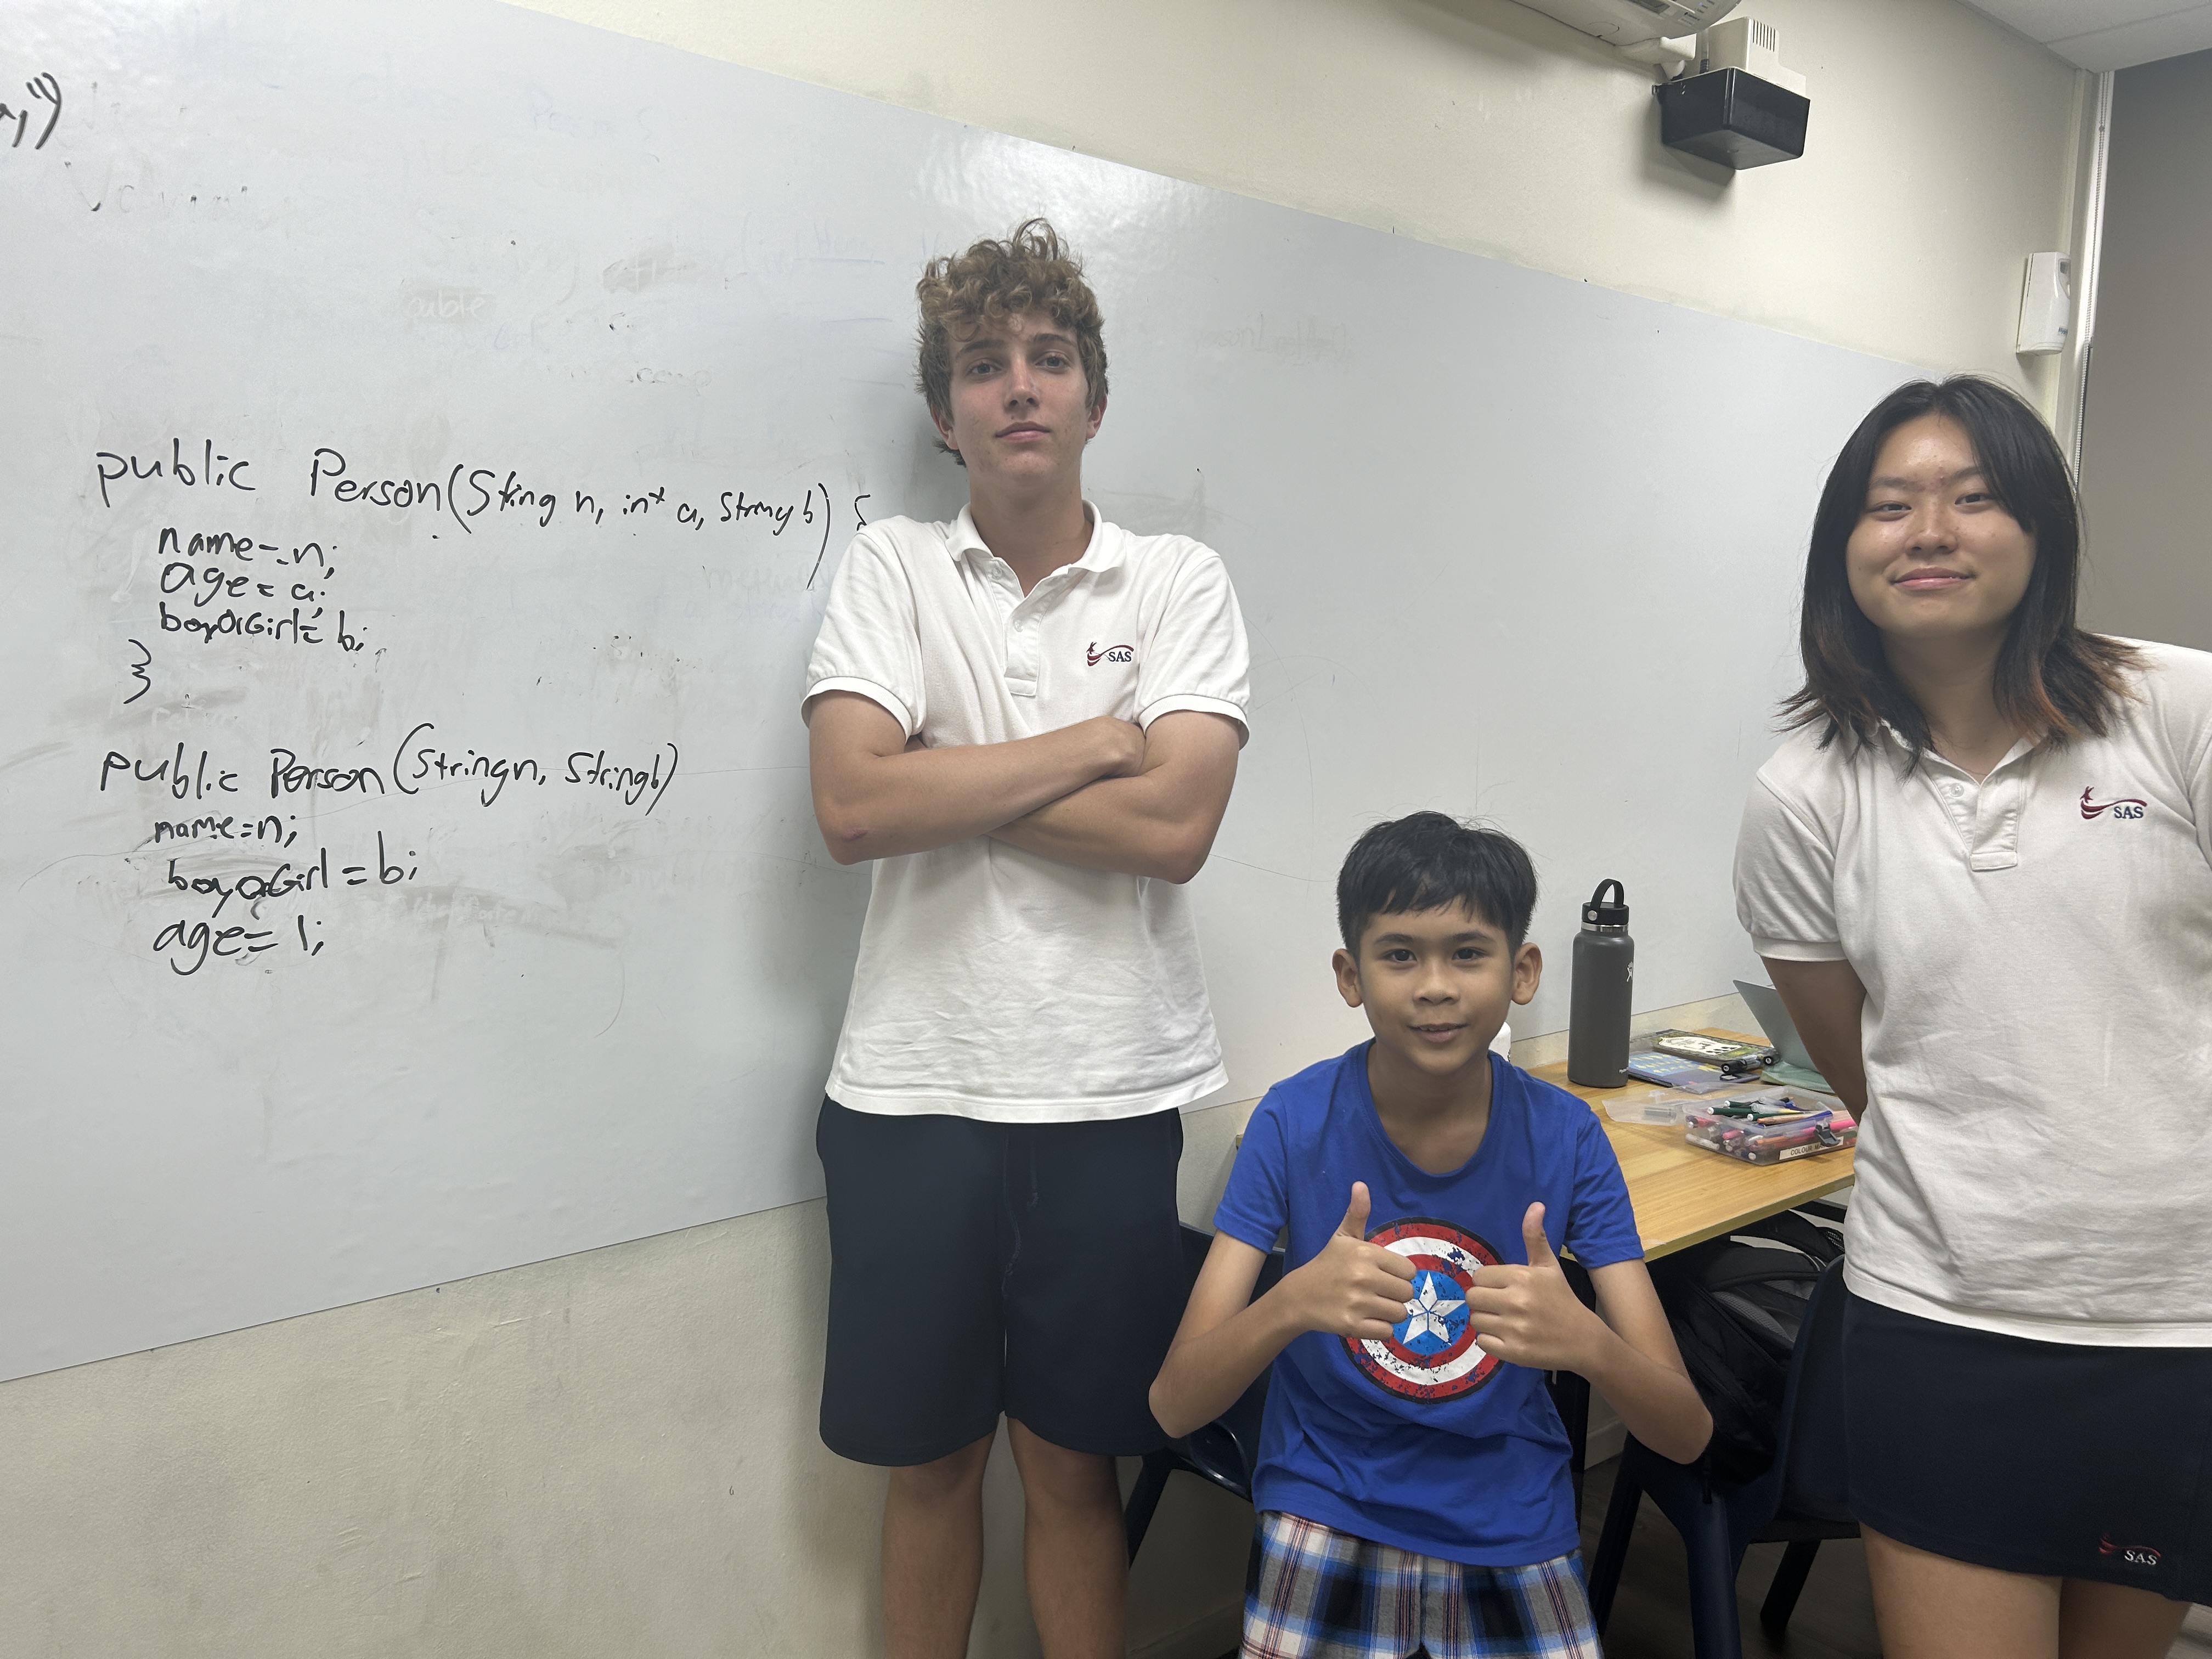 public Person(String n, int a, String b) {
name=n;
age=a;
boyOrGirl=b;
}
public Person(String n, String b)
name=n;
boyOrGirl=b;
age=1;
SAS
SAS
SAS